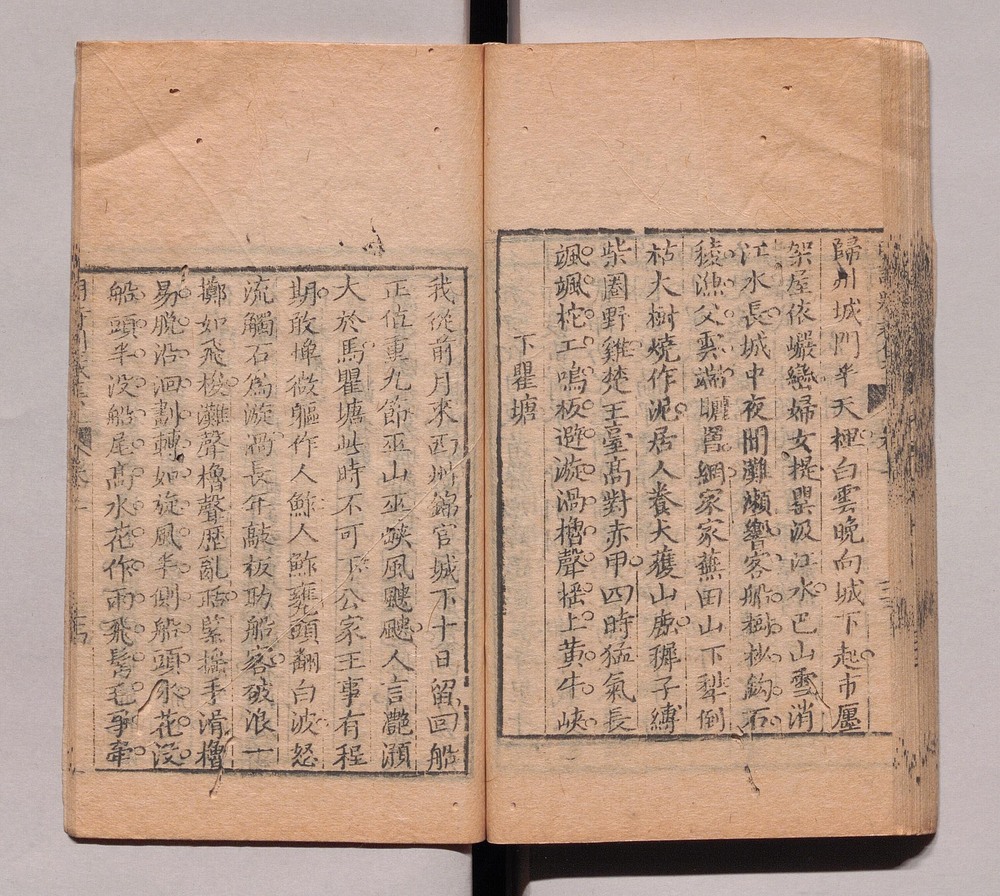 歸州城門半天裡白雲晚向城下起市廛
架屋依巖巒婦女提甖汲江水巴山雪消
江水長城中夜聞灘瀨響客船樹杪鈎石
稜漁父雲端曬罾網家家蕪田山下犁倒
枯大樹燒作泥居人養犬獲山鹿穉子縛
柴圈野雞楚王臺高對赤甲四時猛氣長
颯颯柁工鳴板避漩渦櫓聲搖上黃牛峽
下瞿塘
我從前月來西州錦官城下十日留回船
正值重九節巫山巫峽風颼颼人言灩澦
大於馬瞿塘此時不可下公家王事有程
期敢憚微軀作人鮓人鮓甕頭翻白波怒
流觸石為漩渦長年敲板助船客破浪一
擲如飛梭灘聲櫓聲歷亂聒緊搖手滑櫓
易脫沿洄劃轉如旋風半側船頭水花沒
船頭半沒船尾高水花作雨飛鬢毛爭牽